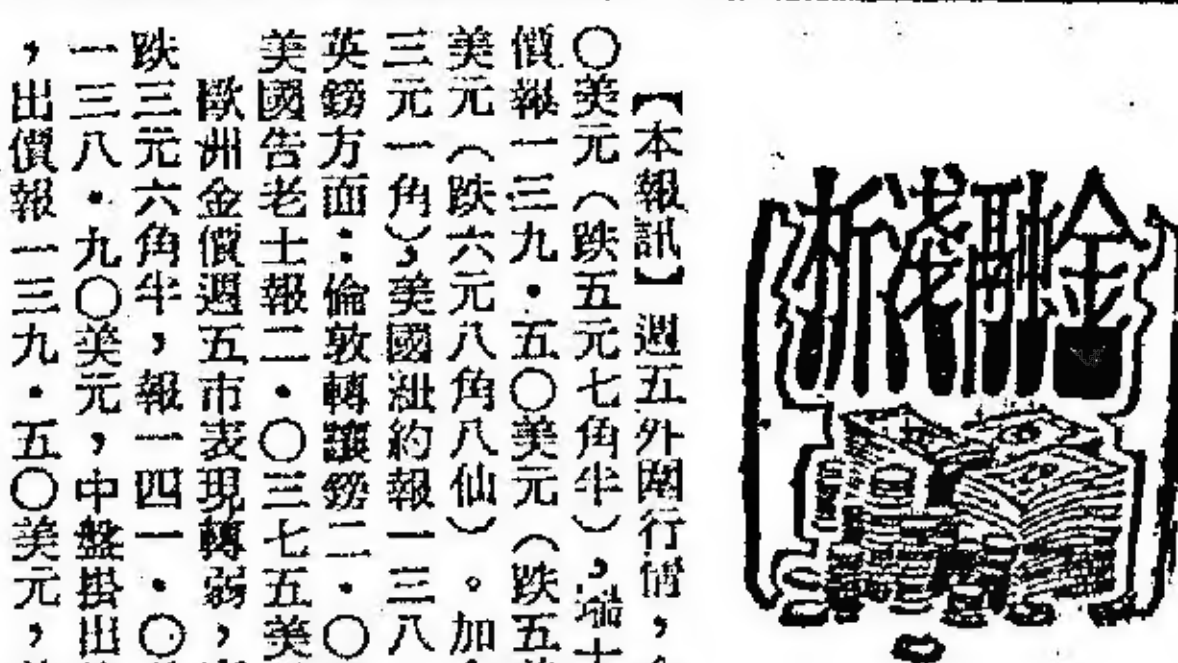 金融淺析
【本報訊】週五外圍行情，
〇美元（跌五元七角半），瑞士
價報一三九．五〇美元（跌五
美元（跌六元八角八仙）。加
三元一角），美國紐約報一三八
英鎊方面：倫敦轉讓鎊二．〇
美國告老士報二．〇三七五美
歐洲金價週五市表現轉弱，
跌三元六角半，報一四一．〇
一三八．九〇美元，中盤掛出
，出價報一三九．五〇美元，